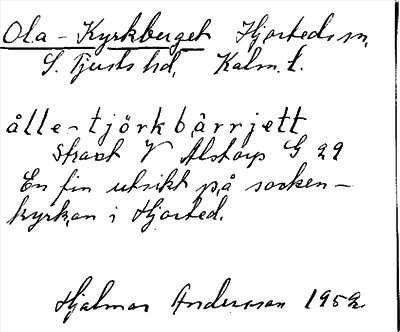 Ola-Kyrkberget Hjorteds sn,
S. Tjusts hd, Kalm. l.
ålle-tjörkbärrjett
Strax V Alstorp G 29
En fin utsikt på socken-
kyrkan i Hjorted.
Hjalmar Andersson 1952.